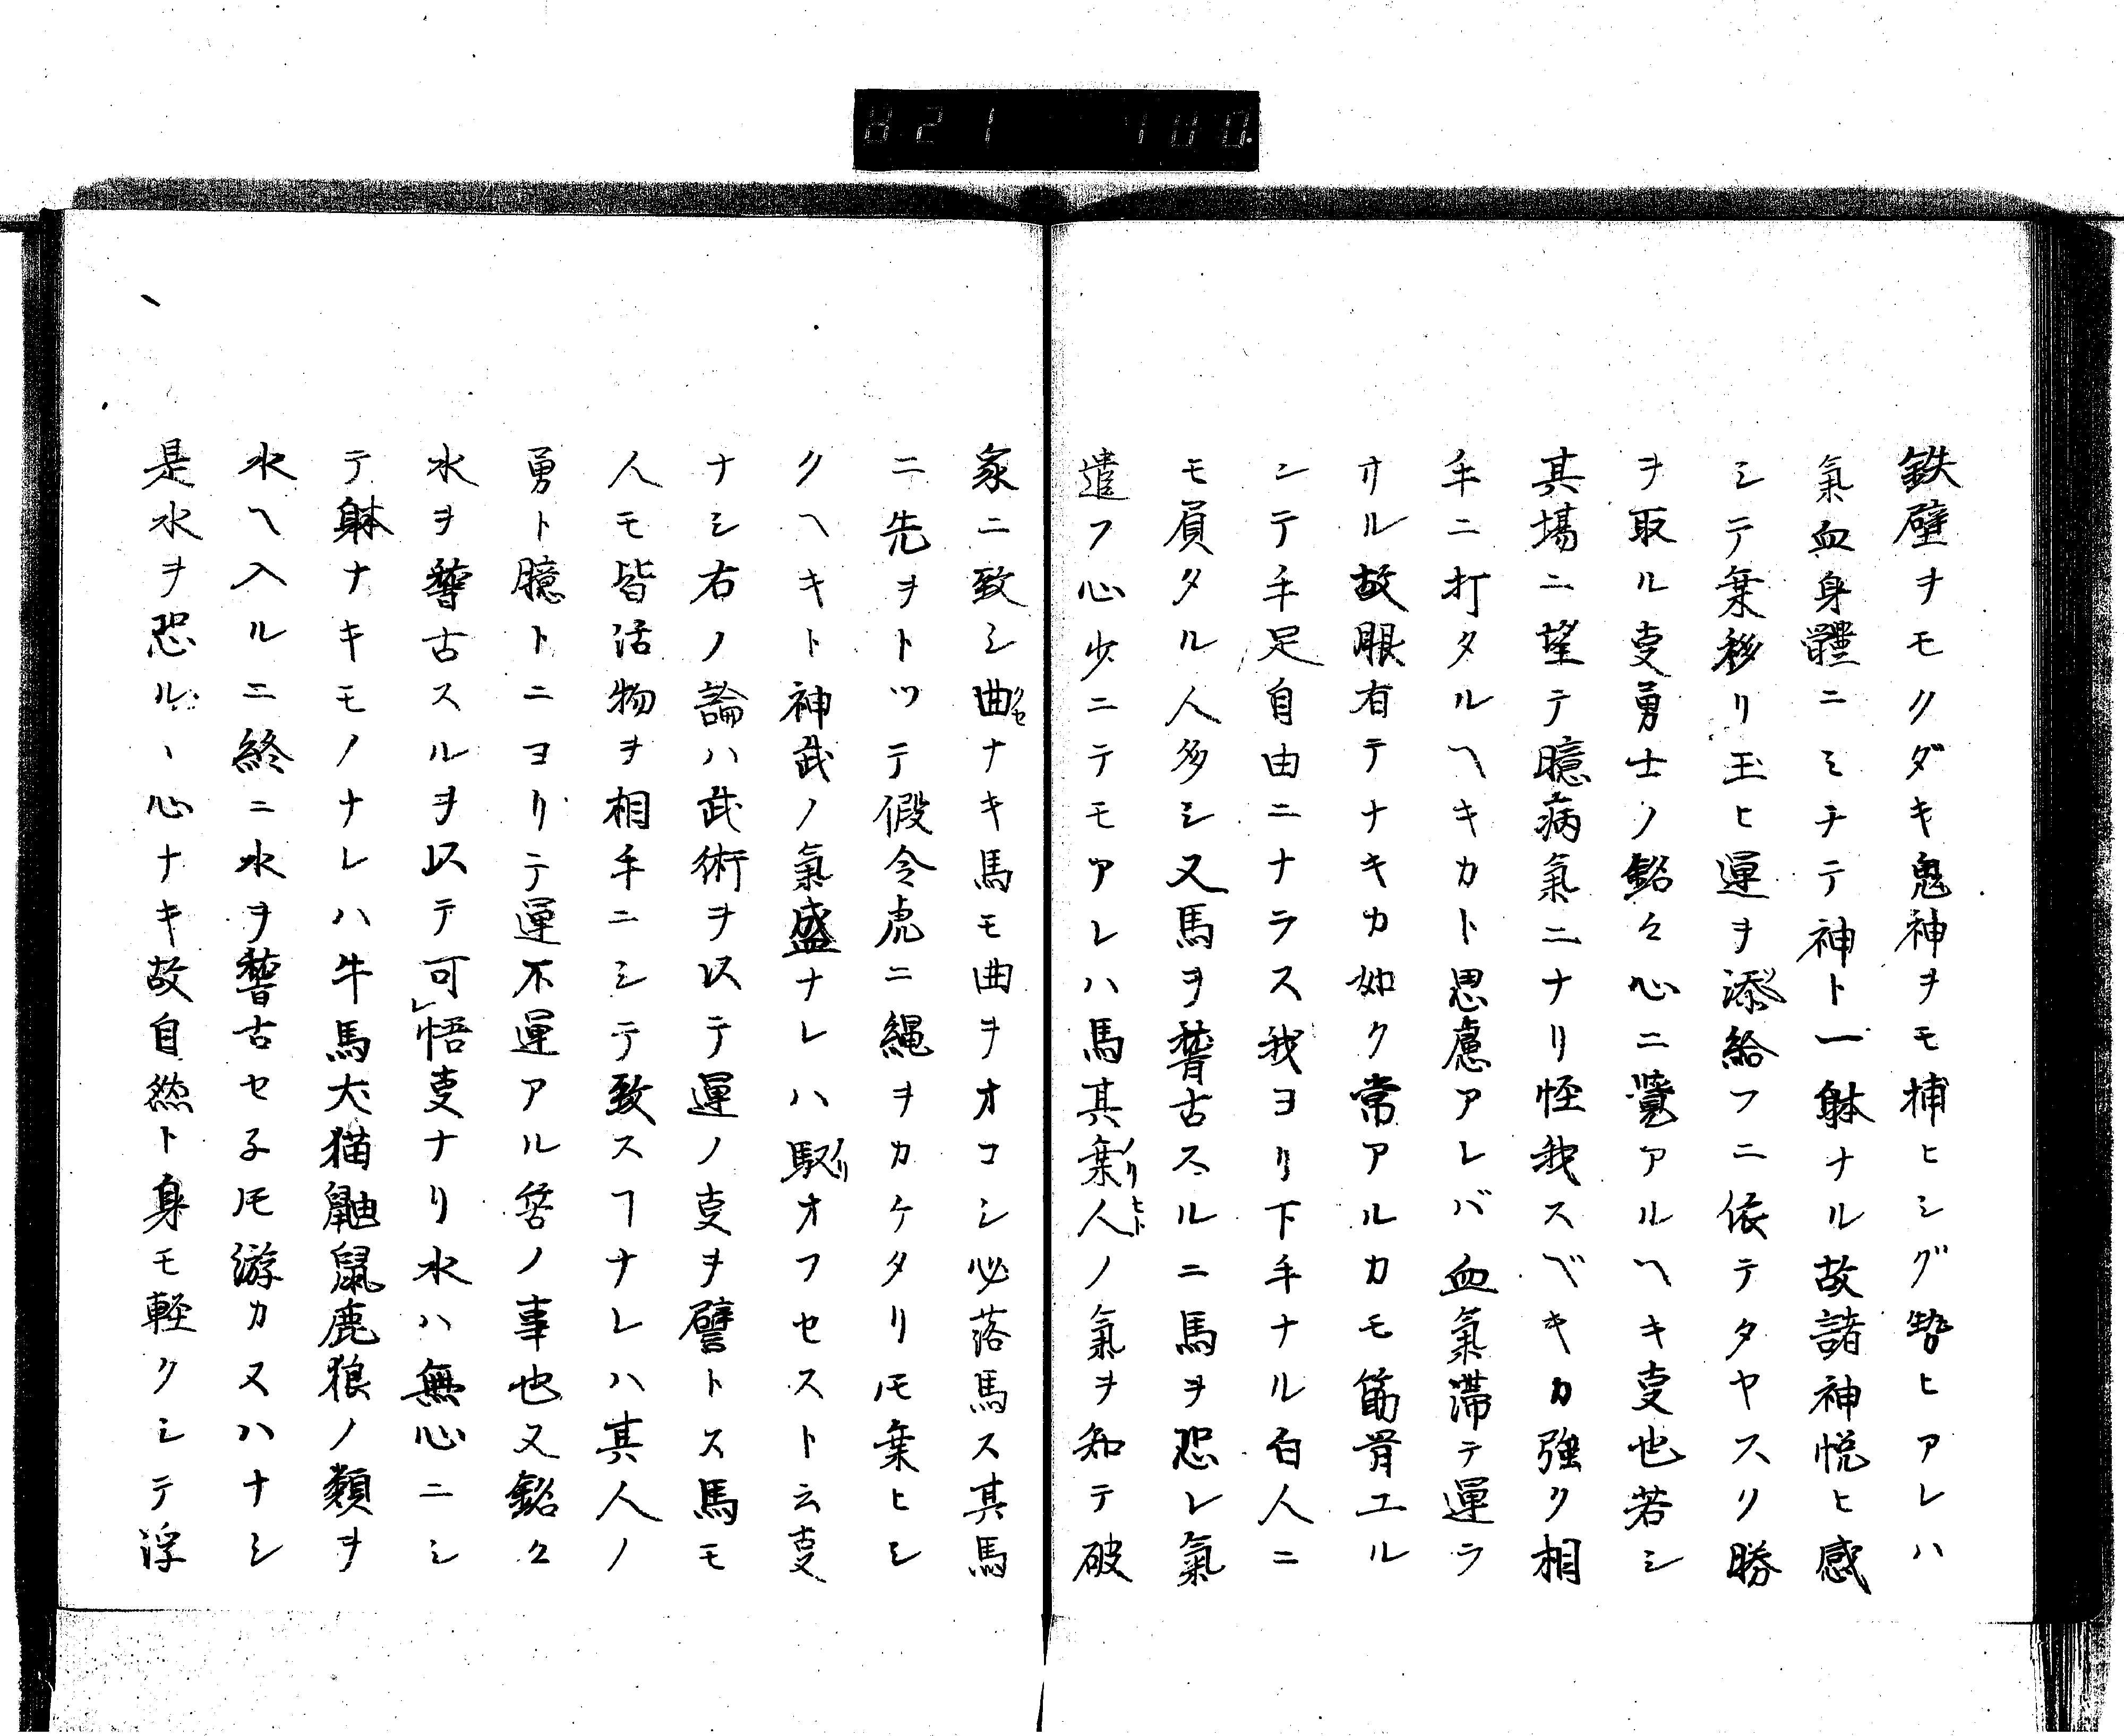 821 100.
鉄壁ヲモクダキ鬼神ヲモ捕ヒシグ勢ヒアレハ
氣血身體ニミチテ神ト一躰ナル故諸神悦ヒ感
シテ乗移リ玉ヒ運ヲ添給フニ依テタヤスク勝
ヲ取ル叓勇士ノ銘々心ニ覺アルヘキ叓也若シ
其場ニ望テ臆病氣ニナリ怪我スベキカ強ク相
手ニ打タルヘキカト思慮アレバ血氣滞テ運ラ
サル故眼有テナキカ如ク常アルカモ筋骨ユル
ンテ手足自由ニナラス我ヨリ下手ナル白人ニ
モ負タル人多シ又馬ヲ䅲古スルニ馬ヲ恐レ氣
遣フ心少ニテモアレハ馬其乗人ノリヒトノ氣ヲ知テ破
家ニ致シ曲クセナキ馬モ曲ヲオコシ必落馬ス其馬
ニ先ヲトツテ假令虎ニ縄ヲカケタリ𪜈乗ヒシ
クヘキト神武ノ氣盛ナレハ馭ノリオフセスト云叓
ナシ右ノ論ハ武術ヲ以テ運ノ叓ヲ譬トス馬モ
人モ皆活物ヲ相手ニシテ致スヿナレハ其人ノ
勇ト臆トニヨリテ運不運アル筈ノ事也又銘々
水ヲ䅲古スルヲ以テ可㆑悟叓ナリ水ハ無心ニシ
テ躰ナキモノナレハ牛馬犬猫鼬鼠鹿狼ノ類ヲ
水ヘ入ルニ終ニ水ヲ䅲古セ子𪜈游カヌハナシ
是水ヲ恐ルヽ心ナキ故自然ト身モ軽クシテ浮